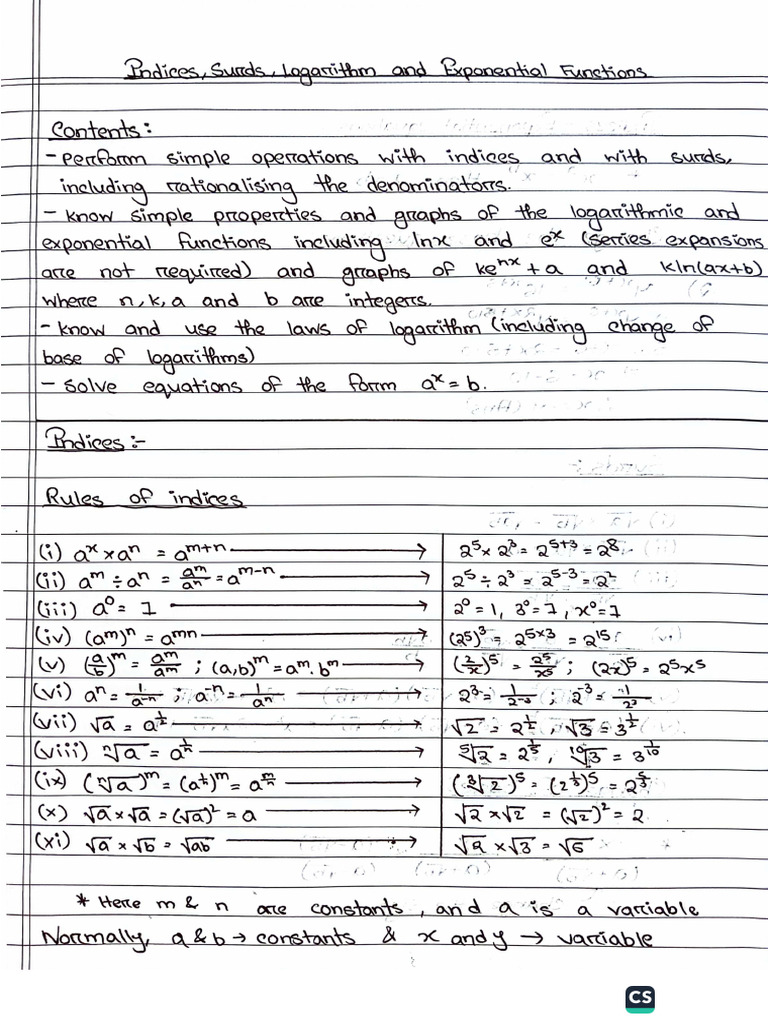 Indices, Surds, Logarithm and Exponential Functions
Contents:
- Perform simple operations with indices and with surds,
including rationalising the denominators.
- Know simple properties and graphs of the logarithmic and
exponential functions including lnx and eˣ (series expansions
are not required) and graphs of keⁿˣ + a and kln(ax+b)
where n, k, a and b are integers.
- Know and use the laws of logarithm (including change of
base of logarithms)
- Solve equations of the form aˣ = b.
Indices :-
Rules of indices
(i) a^x × a^n = a^(m+n) → 2^5 × 2^3 = 2^(5+3) = 2^8
(ii) a^m ÷ a^n = a^m/a^n = a^(m-n) → 2^5 ÷ 2^3 = 2^(5-3) = 2^2
(iii) a^0 = 1 → 2^0 = 1, 3^0 = 1, x^0 = 1
(iv) (a^m)^n = a^(mn) → (2^5)^3 = 2^(5×3) = 2^15
(v) (a/b)^m = a^m/a^m ; (a,b)^m = a^m . b^m → (2/x)^5 = 2^5/x^5 ; (2x)^5 = 2^5x^5
(vi) a^n = 1/a^-n ; a^-n = 1/a^n → 2^3 = 1/2^-3 ; 2^-3 = 1/2^3
(vii) √a = a^(1/2) → √2 = 2^(1/2), √3 = 3^(1/2)
(viii) ⁿ√a = a^(1/n) → ⁵√2 = 2^(1/5), ¹⁰√3 = 3^(1/10)
(ix) (ⁿ√a)^m = (a^(1/n))^m = a^(m/n) → (³√2)^5 = (2^(1/3))^5 = 2^(5/3)
(x) √a × √a = (√a)^2 = a → √2 × √2 = (√2)^2 = 2
(xi) √a × √b = √ab → √2 × √3 = √6
* Here m & n are constants, and a is a variable
Normally, a & b → constants & x and y → variable
CS